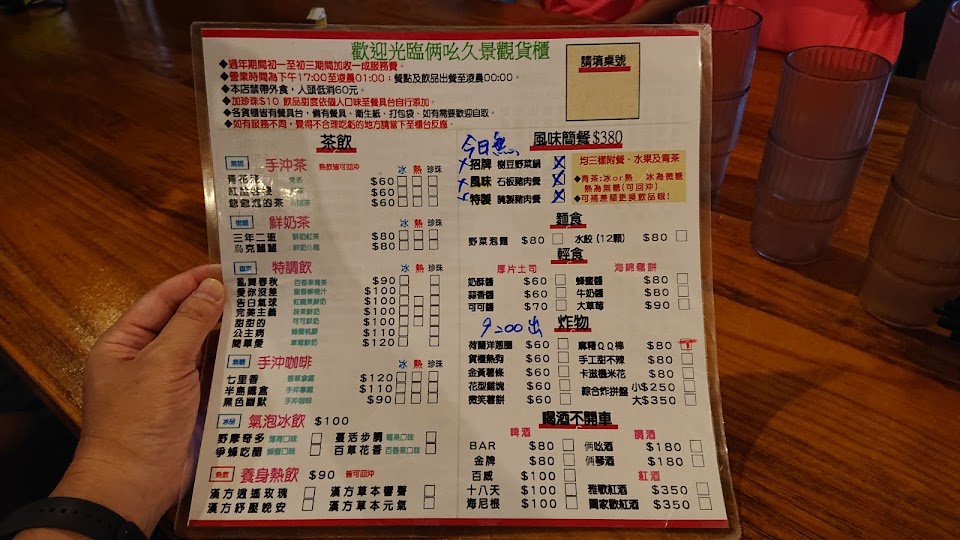 歡迎光臨倆吆久景觀貨櫃
◆過年期間初一至初三期間加收一成服務費。
◆營業時間為下午17:00至凌晨01:00；餐點及飲品出餐至凌晨00:00。
◆本店禁帶外食，人頭低消60元。
◆加珍珠$10 飲品甜度依個人口味至餐具台自行添加。
◆各貨櫃皆有餐具台，備有餐具、衛生紙、打包袋、如有需要歡迎自取。
◆如有服務不周，覺得不合理吃虧的地方請當下至櫃台反應。
請填桌號
茶飲
手沖茶 熱飲皆可回沖 冰 熱 珍珠
青花瓷 $60
紅 $60
慫慫泡的茶 $60
鮮奶茶 冰 熱 珍珠
三年二班 鮮奶紅茶 $80
烏克麗麗 鮮奶烏龍 $80
特調飲 冰 熱 珍珠
亂舞春秋 百香果青茶 $90
愛你沒差 $100
告白氣球 紅心鮮奶 $100
完美主義 抹茶鮮奶 $100
甜甜的 可可鮮奶 $100
公主病 $110
簡單愛 草莓鮮奶 $120
手沖咖啡 冰 熱 珍珠
七里香 $120
半島鐵盒 $110
黑色幽默 手沖咖啡 $90
冰品 氣泡冰飲 $100
野摩奇多 薄荷口味
蔓活步調 莓果口味
爭蜂吃醋 蜂蜜口味
百草花香 百香果口味
熱飲 養身熱飲 $90 皆可回沖
漢方逍遙玫瑰
漢方草本響聲
漢方紓壓晚安
漢方草本元氣
今日無
風味簡餐$380
招牌 樹豆野菜鍋
風味 石板豬肉餐
特製 醃製豬肉餐
均三樣附餐、水果及青茶
◆青茶:冰or熱 冰為微糖
熱為無糖(可回沖)
◆可補差額更換飲品哦!
麵食
野菜泡麵 $80
水餃(12顆) $80
輕食
厚片土司
海綿鬆餅
奶酥醬 $60
蜂蜜醬 $80
蒜香醬 $60
牛奶醬 $80
可可醬 $70
大草莓 $90
9:00出
炸物
荷蘭洋蔥圈 $60
麻糬QQ棒 $80
貨櫃熱狗 $60
手工甜不辣 $80
金黃薯條 $60
卡滋機米花 $80
花型雞塊 $60
綜合炸拼盤 小$250
微笑薯餅 $60
大$350
喝酒不開車
啤酒
調酒
BAR $80
倆吆酒 $180
金牌 $80
倆琴酒 $180
百威 $100
紅酒
十八天 $100
雅歌紅酒 $350
海尼根 $100
圖家歡紅酒 $350